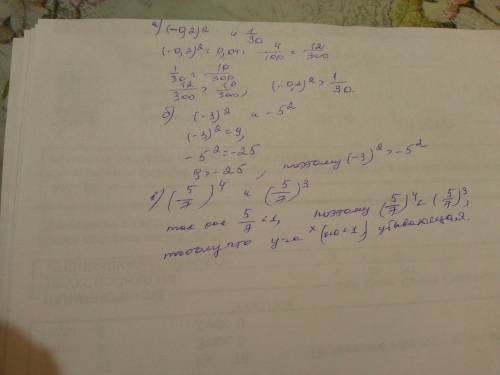 а) (-0,2)² и 1/30
(-0,2)² = 0,04 = 4/100 = 12/300
1/30 = 10/300
12/300 > 10/300, (-0,2)² > 1/30
б) (-3)² и -5²
(-3)² = 9,
-5² = -25
9 > -25, поэтому (-3)² > -5²
в) (5/7)⁴ и (5/7)³
так как 5/7 < 1, поэтому (5/7)⁴ < (5/7)³,
потому что y = aˣ убывающая.